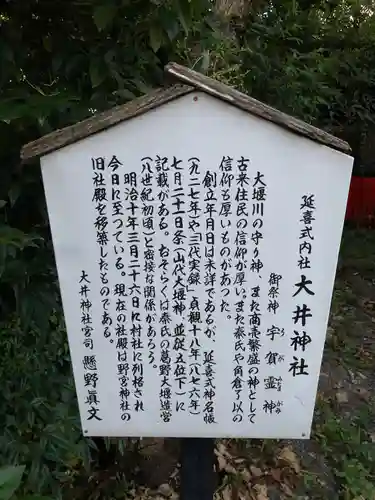 延喜式内社 大井神社
御祭神 宇賀霊神
うがたまのかみ
大堰川の守り神、また商売繁盛の神として
古来住民の信仰が厚い。また秦氏や角倉了以の
信仰も厚いものがあった。
創立年月日は未詳であるが、延喜式神名帳
(九二七年)や「三代実録」貞観十八年(八七六年)
七月二十一日条(山代大堰神、並従五位下)に
記載がある。おそらくは秦氏の葛野大堰造営
(八世紀初頃)と密接な関係があろう。
明治十年三月二十六日に村社に列格され
今日に至っている。現在の社殿は野宮神社の
旧社殿を移築したものである。
大井神社宮司 懸野眞文